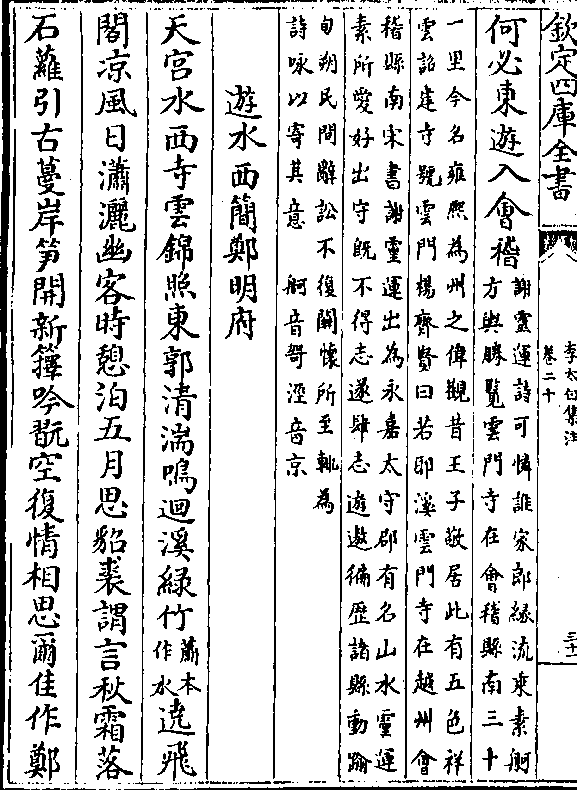 欽定四庫全書
李太白集注
卷二十
三十一
何必東遊入會稽
謝靈運詩可憐誰家郎緣流乘素舸
方輿勝覽雲門寺在會稽縣南三十
一里今名雍熙為州之偉觀昔王子敬居此有五色祥
雲詔建寺號雲門楊齊賢曰若耶溪雲門寺在越州會
稽縣南宋書謝靈運出為永嘉太守郡有名山水靈運
素所愛好出守既不得志遂肆志遊遨徧歷諸縣動踰
旬朔民間辭訟不復關懷所至輒為
詩咏以寄其意 舸音哿涇音京
遊水西簡鄭明府
天宮水西寺雲錦照東郭清湍鳴迴溪綠竹
蕭本
作水
遶飛
閣凉風日瀟灑幽客時憩泊五月思貂裘謂言秋霜落
石蘿引古蔓岸笋開新籜吟翫空復情相思爾佳作鄭